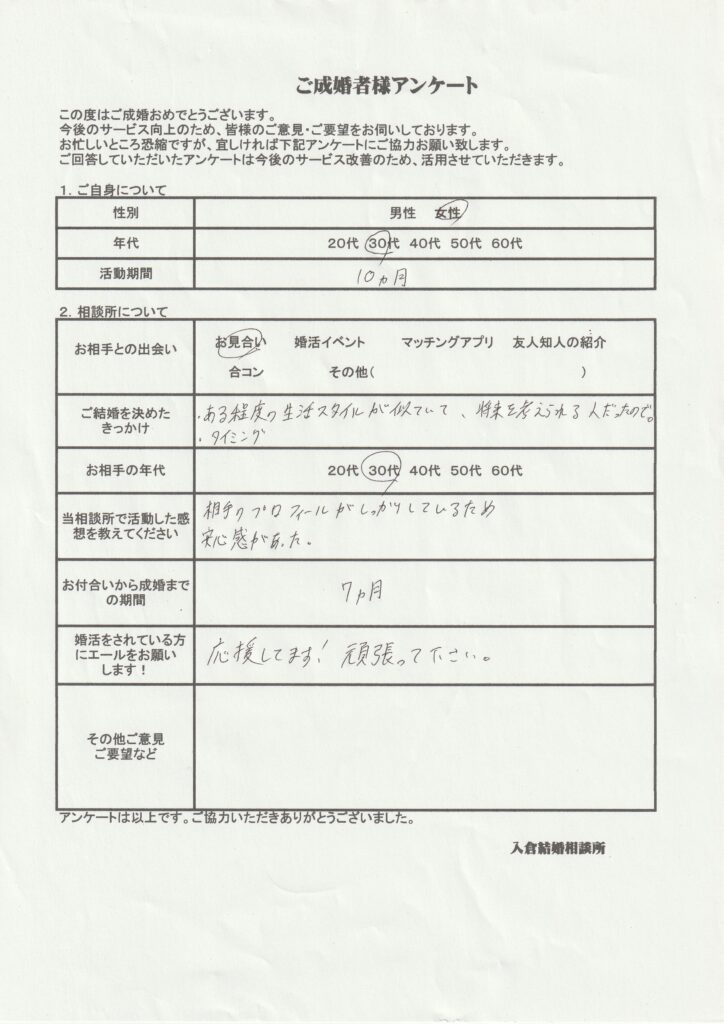 ご成婚者様アンケート
この度はご成婚おめでとうございます。
今後のサービス向上のため、皆様のご意見・ご要望をお伺いしております。
お忙しいところ恐縮ですが、宜しければ下記アンケートにご協力お願い致します。
ご回答していただいたアンケートは今後のサービス改善のため、活用させていただきます。
1. ご自身について
性別 男性 女性
年代 20代 30代 40代 50代 60代
活動期間 10ヵ月
2. 相談所について
お相手との出会い お見合い 婚活イベント マッチングアプリ 友人知人の紹介
合コン その他( )
ご結婚を決めた
きっかけ
・ある程度の生活スタイルが似ていて、将来を考えられる人だったので。
・タイミング
お相手の年代 20代 30代 40代 50代 60代
当相談所で活動した感
想を教えてください
相手のプロフィールがしっかりしているため
安心感があった。
お付合いから成婚まで
の期間
7ヵ月
婚活をされている方
にエールをお願い
します！
応援してます! 頑張って下さい。
その他ご意見
ご要望など
アンケートは以上です。ご協力いただきありがとうございました。
入倉結婚相談所